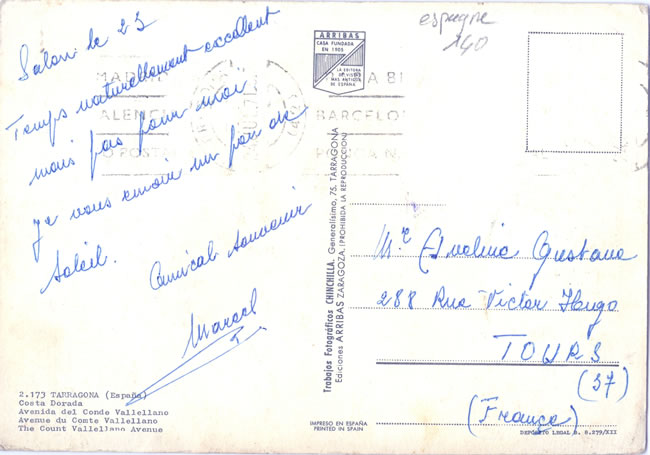 Salon le 23
Temps naturellement excellent
mais pas pour moi
Je vous envoie un peu de
Soleil.
Amical Souvenir
Marcel
2.173 TARRAGONA (España)
Costa Dorada
Avenida del Conde Vallellano
Avenue du Comte Vallellano
The Count Vallellano Avenue
ARRIBAS
CASA FUNDADA
EN 1905
LA EDITORA
DE VISTAS
MAS ANTIGUA
DE ESPAÑA
Trabajos Fotográficos CHINCHILLA. Generalísimo, 75. TARRAGONA
Ediciones ARRIBAS ZARAGOZA. (PROHIBIDA LA REPRODUCCION)
IMPRESO EN ESPAÑA
PRINTED IN SPAIN
espagne
140
MADRID 81
BARCELO
PO POST
Mr Gustave
288 Rue Victor Hugo
TOURS
(37)
(France)
DEPÓSITO LEGAL B. 8.279/XII